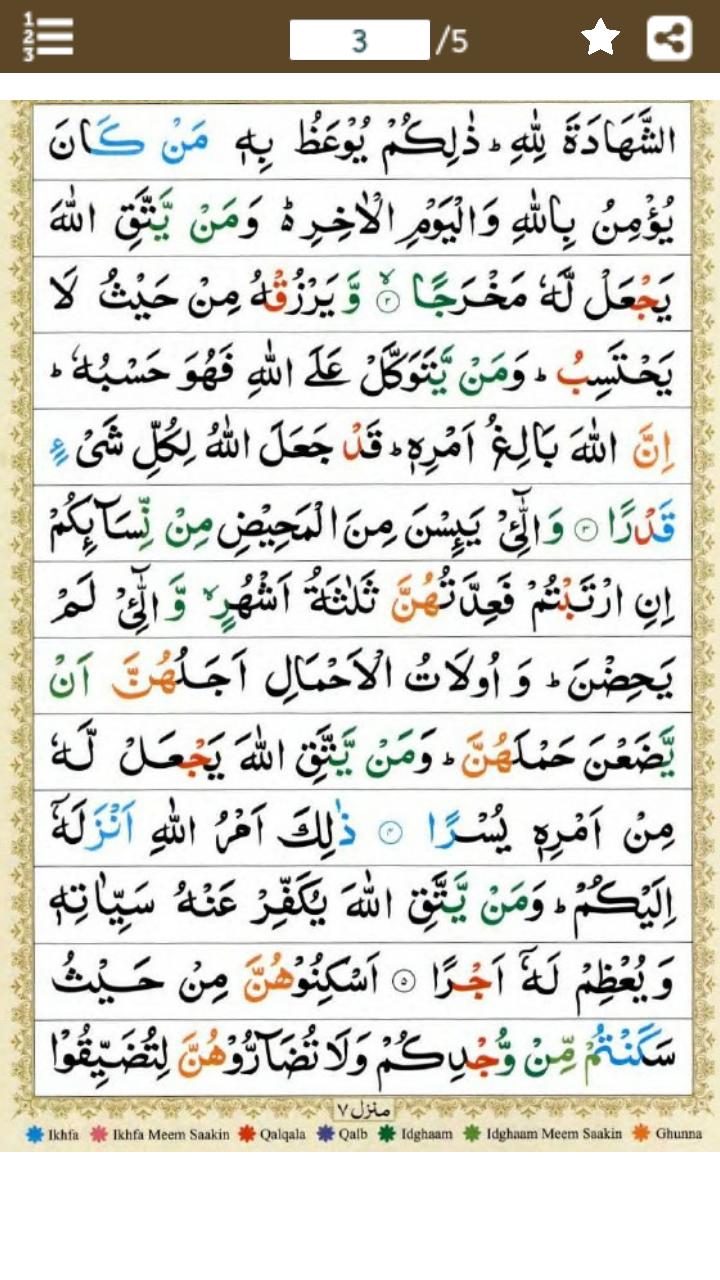 1
2
3
3 /5
الشَّهَادَةَ لِلّٰهِ ؕ ذٰلِكُمْ يُوْعَظُ بِهٖ مَنْ كَانَ
يُؤْمِنُ بِاللّٰهِ وَالْيَوْمِ الْاٰخِرِ ؕ۬ وَمَنْ يَّتَّقِ اللّٰهَ
يَجْعَلْ لَّهٗ مَخْرَجًا ۙ﴿۲﴾ وَّ يَرْزُقْهُ مِنْ حَيْثُ لَا
يَحْتَسِبُ ؕ وَمَنْ يَّتَوَكَّلْ عَلَى اللّٰهِ فَهُوَ حَسْبُهٗ ؕ
اِنَّ اللّٰهَ بَالِغُ اَمْرِهٖ ؕ قَدْ جَعَلَ اللّٰهُ لِكُلِّ شَیْءٍ
قَدْرًا ﴿۳﴾ وَالّٰٓـِٔیْ يَئِسْنَ مِنَ الْمَحِيْضِ مِنْ نِّسَآئِكُمْ
اِنِ ارْتَبْتُمْ فَعِدَّتُهُنَّ ثَلٰثَةُ اَشْهُرٍ ۙ وَّ الّٰٓـِٔیْ لَمْ
يَحِضْنَ ؕ وَ اُولَاتُ الْاَحْمَالِ اَجَلُهُنَّ اَنْ
يَّضَعْنَ حَمْلَهُنَّ ؕ وَمَنْ يَّتَّقِ اللّٰهَ يَجْعَلْ لَّهٗ
مِنْ اَمْرِهٖ يُسْرًا ﴿۴﴾ ذٰلِكَ اَمْرُ اللّٰهِ اَنْزَلَهٗۤ
اِلَيْكُمْ ؕ وَمَنْ يَّتَّقِ اللّٰهَ يُكَفِّرْ عَنْهُ سَيِّاٰتِهٖ
وَ يُعْظِمْ لَهٗۤ اَجْرًا ﴿۵﴾ اَسْكِنُوْهُنَّ مِنْ حَيْثُ
سَكَنْتُمْ مِّنْ وُّجْدِكُمْ وَلَا تُضَآرُّوْهُنَّ لِتُضَيِّقُوْا
منزل ۷
Ikhfa Ikhfa Meem Saakin Qalqala Qalb Idghaam Idghaam Meem Saakin Ghunna